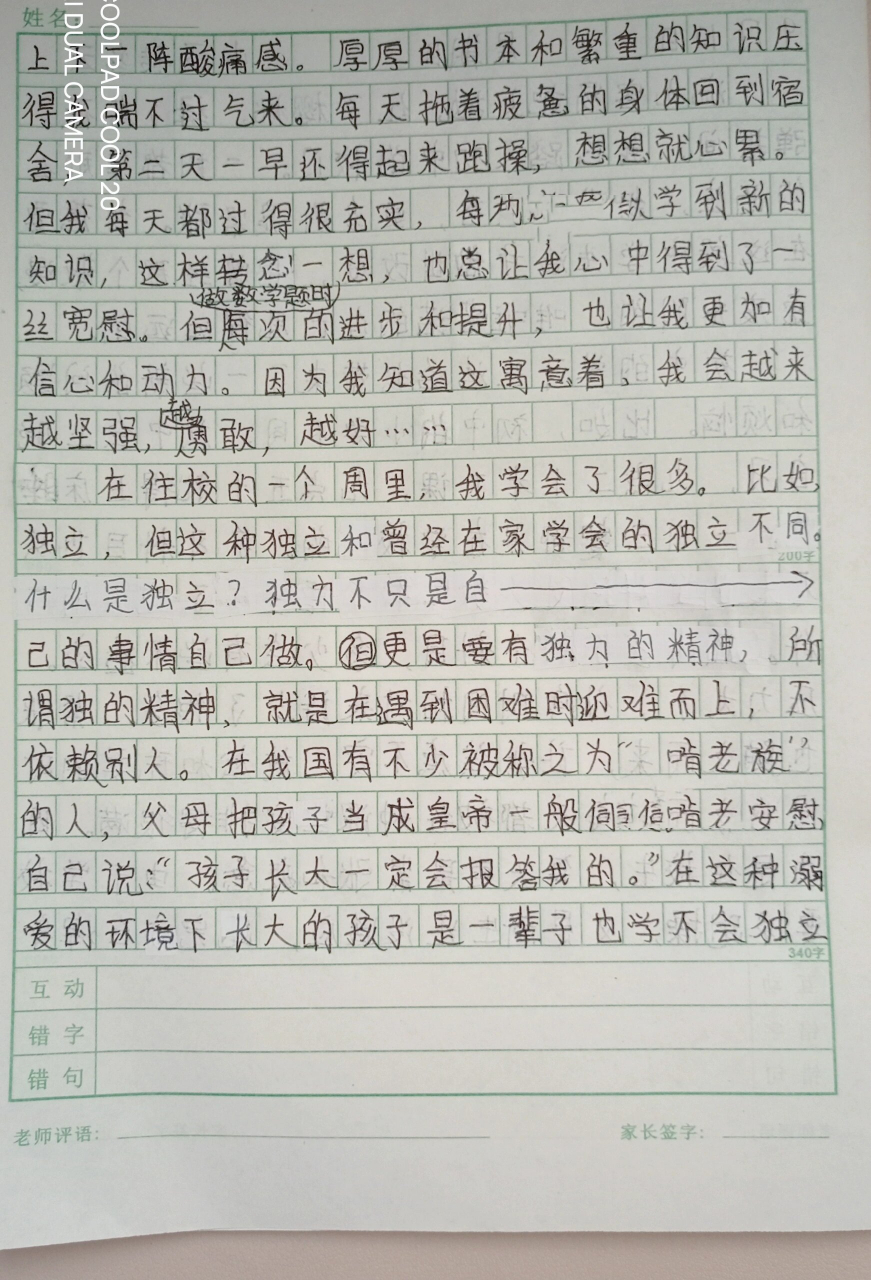 姓名
COOLPAD COOL 20
DUAL CAMERA
上 阵酸痛感。厚厚的书本和繁重的知识压
得我喘不过气来。每天拖着疲惫的身体回到宿
舍，第二天一早还得起来跑操，想想就心累。
但我每天都过得很充实，每 学到新的
知识，这样转念一想，也总让我心中得到了一
做数学题时
丝宽慰。但每次的进步和提升，也让我更加有
信心和动力。因为我知道这寓意着，我会越来
越
越坚强，勇敢，越好……
在住校的一个周里，我学会了很多。比如，
独立，但这种独立和曾经在家学会的独立不同。
200字
什么是独立？独力不只是自
己的事情自己做。但更是要有独力的精神，所
谓独的精神，就是在遇到困难时迎难而上，不
依赖别人。在我国有不少被称之为“啃老族”
的人，父母把孩子当成皇帝一般伺 啃老安慰
自己说：“孩子长大一定会报答我的。”在这种溺
爱的环境下长大的孩子是一辈子也学不会独立
340字
互动
错字
错句
老师评语： 家长签字：